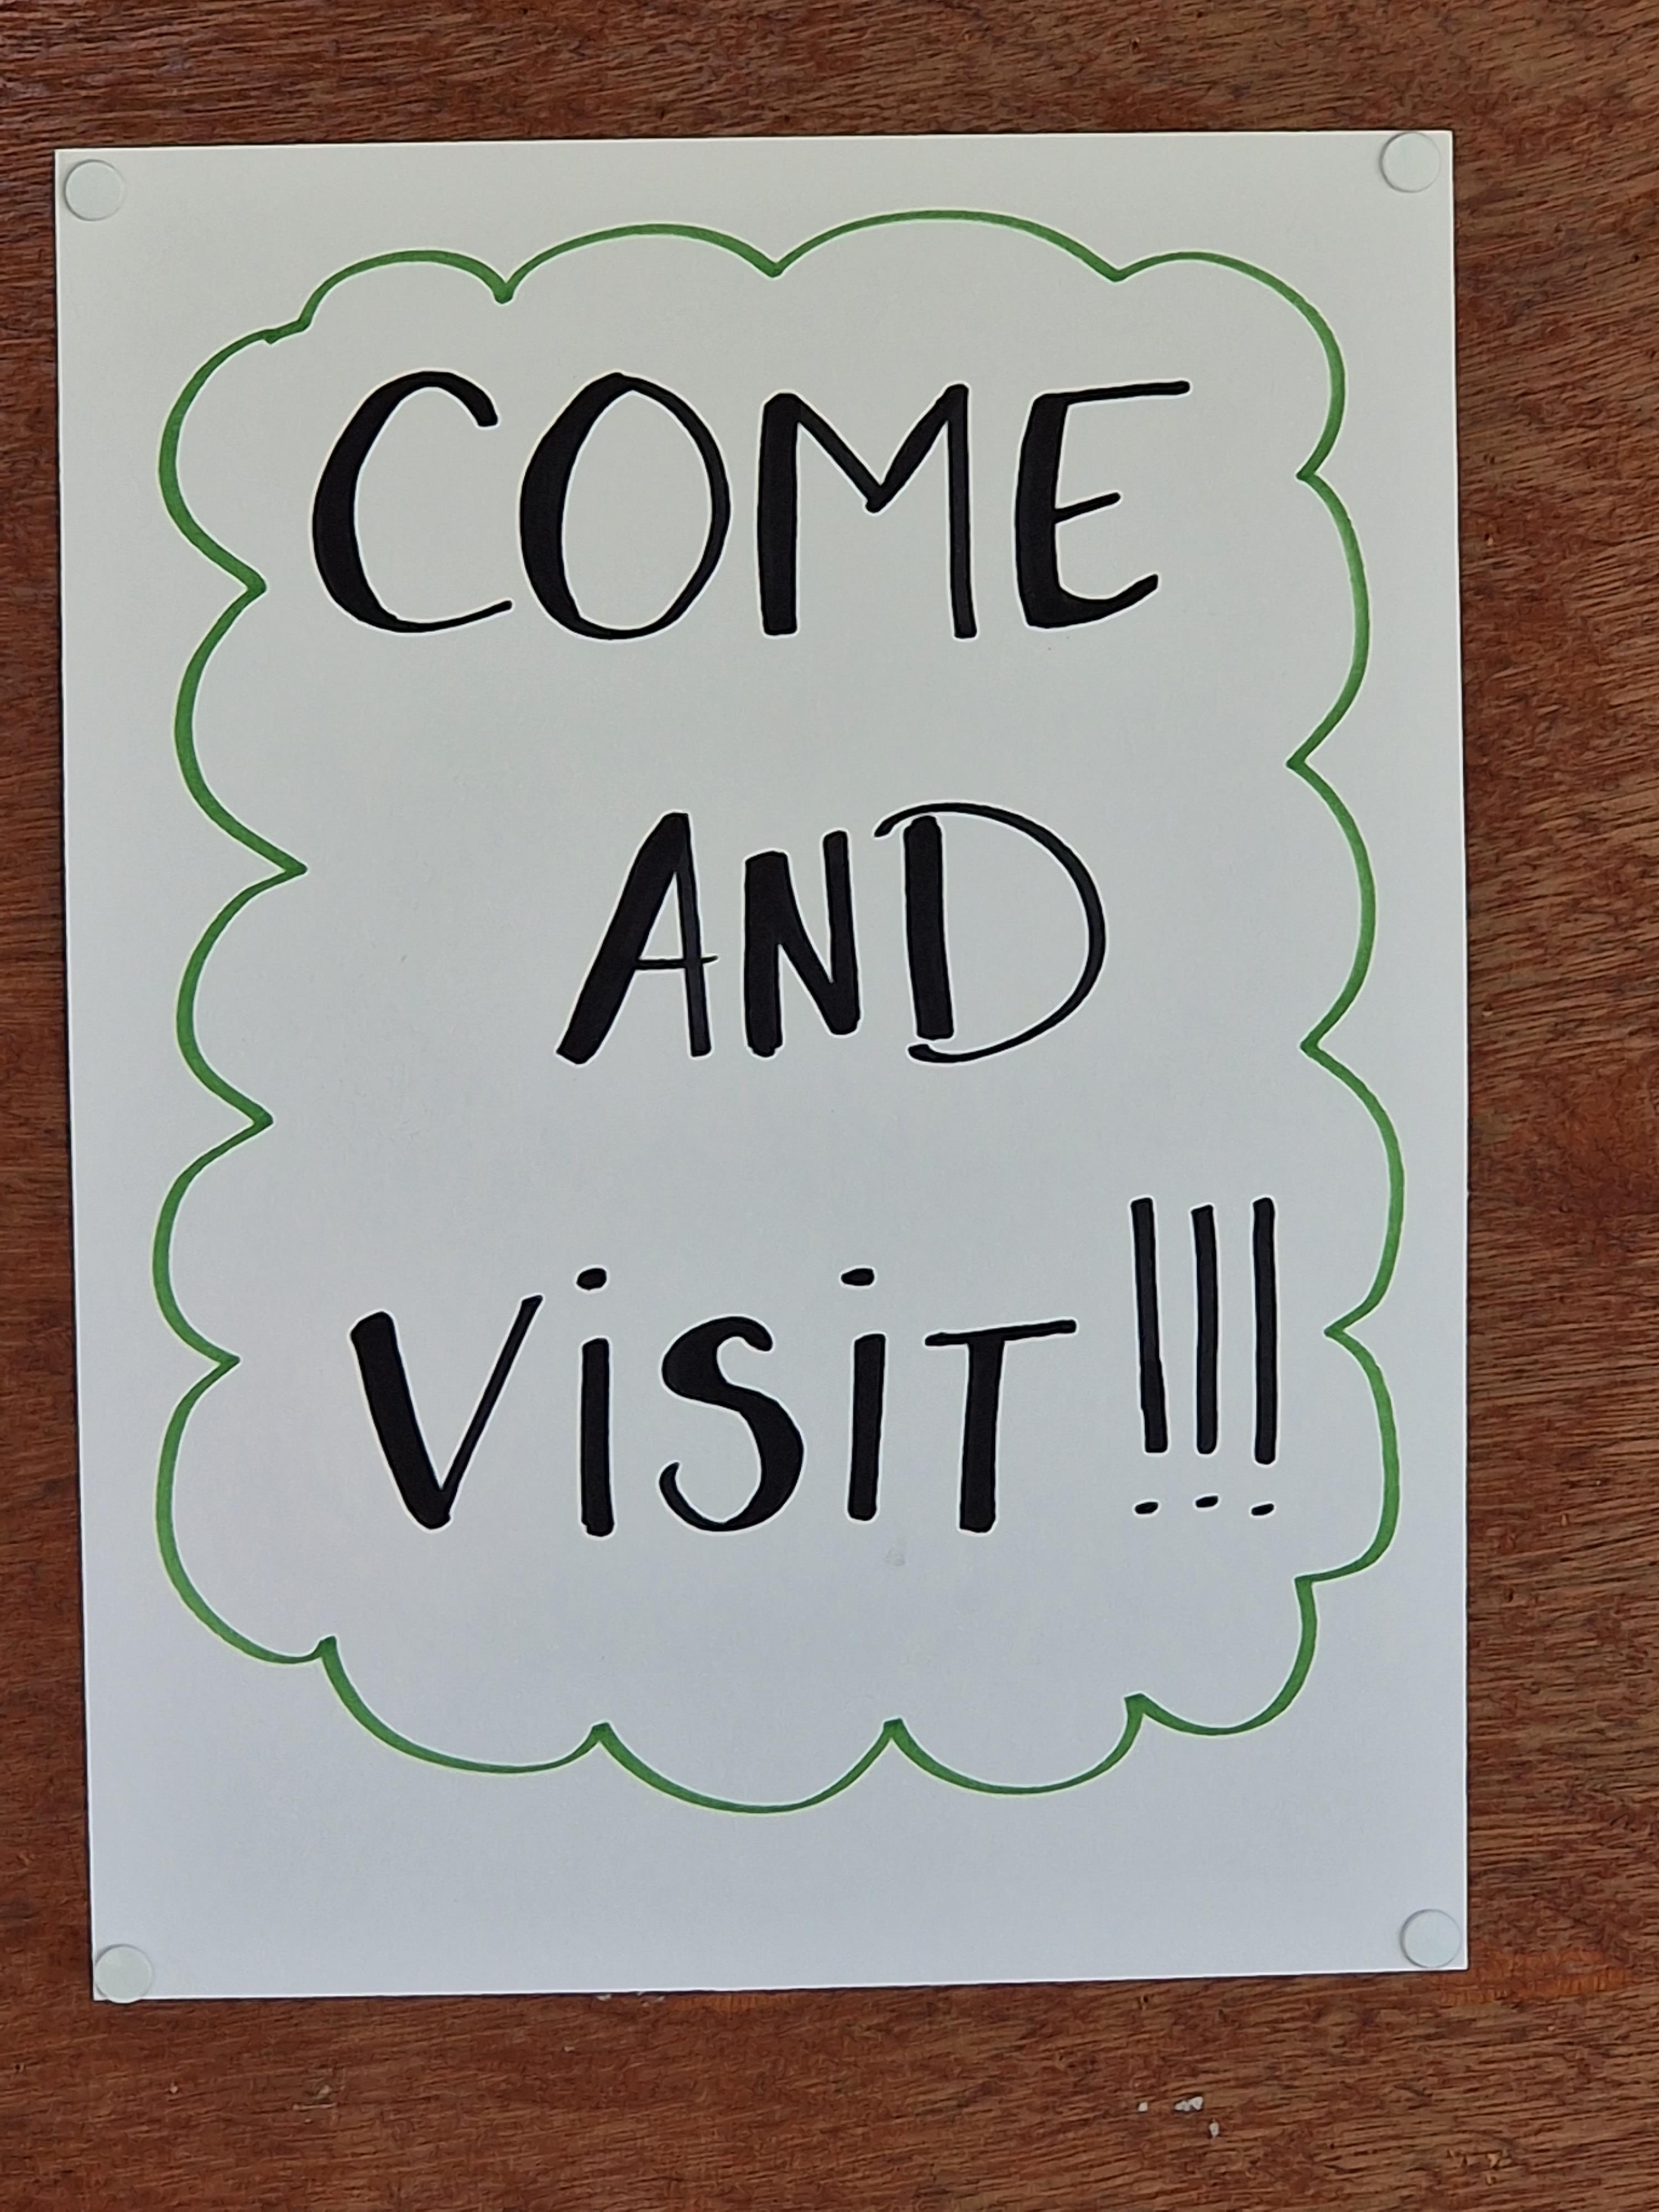 COME
AND
ViSiT!!!